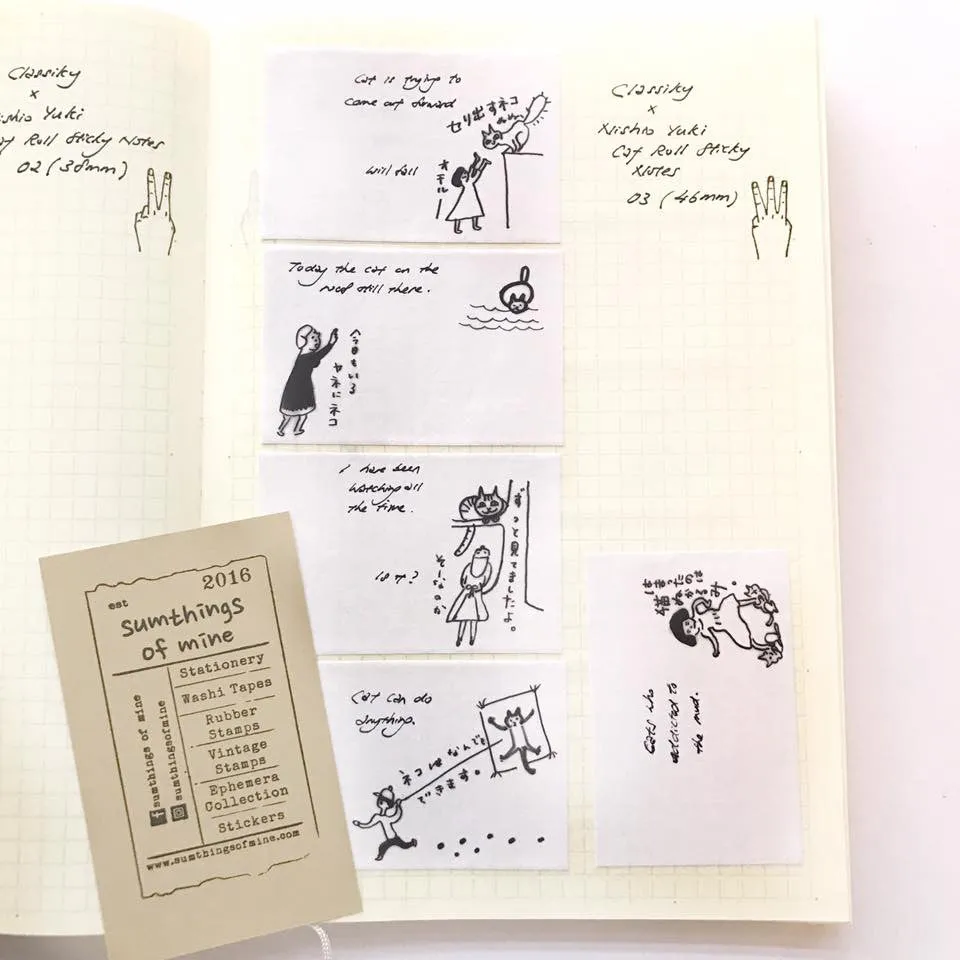 Classiky
x
Yuki
Roll Sticky Notes
02 (38mm)
Cat is trying to
come out forward
セリ出すネコ
will fall
オチルー
Today the cat on the
roof still there.
今日もいる
ヤネにネコ
I have been
watching all
the time.
ずっと見てましたよ。
is it?
そーなのか
Cat can do
anything.
ネコはなんでも
できます。
Classiky
x
Nishio Yuki
Cat Roll Sticky
Notes
03 (46mm)
はまったのは
猫
ぬかるみ。
Cats who
addicted to
the mud.
est 2016
sumthings
of mine
Stationery
Washi Tapes
Rubber
Stamps
Vintage
Stamps
Ephemera
Collection
Stickers
sumthings of mine
sumthingsofmine
www.sumthingsofmine.com